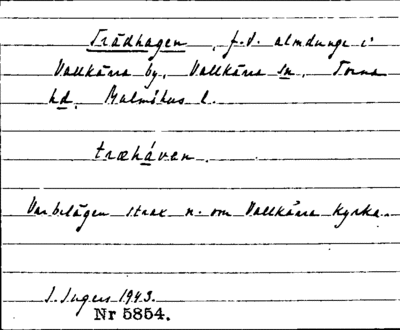 Trädhagen, f.d. almdunge i
Vallkärra by, Vallkärra sn, Torna
hd, Malmöhus l.
træhåven.
Var belägen strax n. om Vallkärra kyrka.
S. Ingers 1943.
Nr 5854.